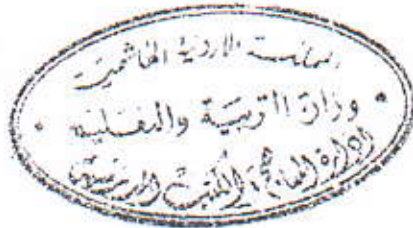 المملكة الاردنية الهاشمية
وزارة التربية والتعليم
الادارة العامة للكتب المدرسية